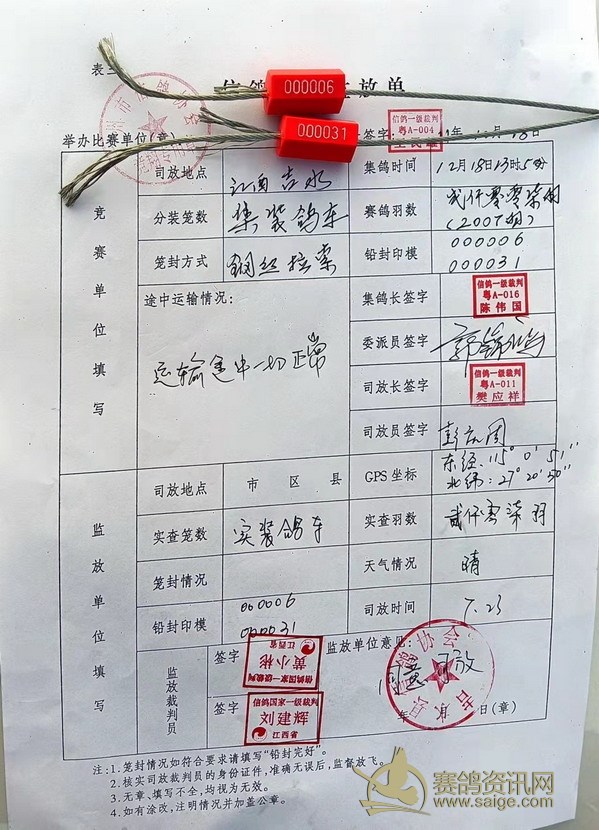 表三
信鸽 放单
000006
000031
举办比赛单位(章)
签字:
信鸽一级裁判
粤A-004
司放地点
江西吉水
集鸽时间
12月18日13时5分
分装笼数
集装鸽车
赛鸽羽数
贰仟零零柒羽
(2007羽)
笼封方式
钢丝拉索
铅封印模
000006
000031
竞赛单位填写
途中运输情况:
运输途中一切正常
集鸽长签字
信鸽一级裁判
粤A-016
陈伟国
委派员签字
司放长签字
信鸽一级裁判
粤A-011
樊应祥
司放员签字
司放地点
市 区 县
GPS坐标
东经:115° 0′ 51″
北纬:27° 20′ 50″
实查笼数
实装鸽车
实查羽数
贰仟零柒羽
笼封情况
天气情况
晴
铅封印模
000006
000031
司放时间
7.23
监放单位填写
监放裁判员
签字
信鸽国家一级裁判
黄小彬
江西省
签字
信鸽国家一级裁判
刘建辉
江西省
监放单位意见:
同意司放
年 月 日(章)
注:1.笼封情况如符合要求请填写“铅封完好”。
2.核实司放裁判员的身份证件,准确无误后,监督放飞。
3.无章、填写不全,均视为无效。
4.如有涂改,注明情况并加盖公章。
赛鸽资讯网
www.saige.com